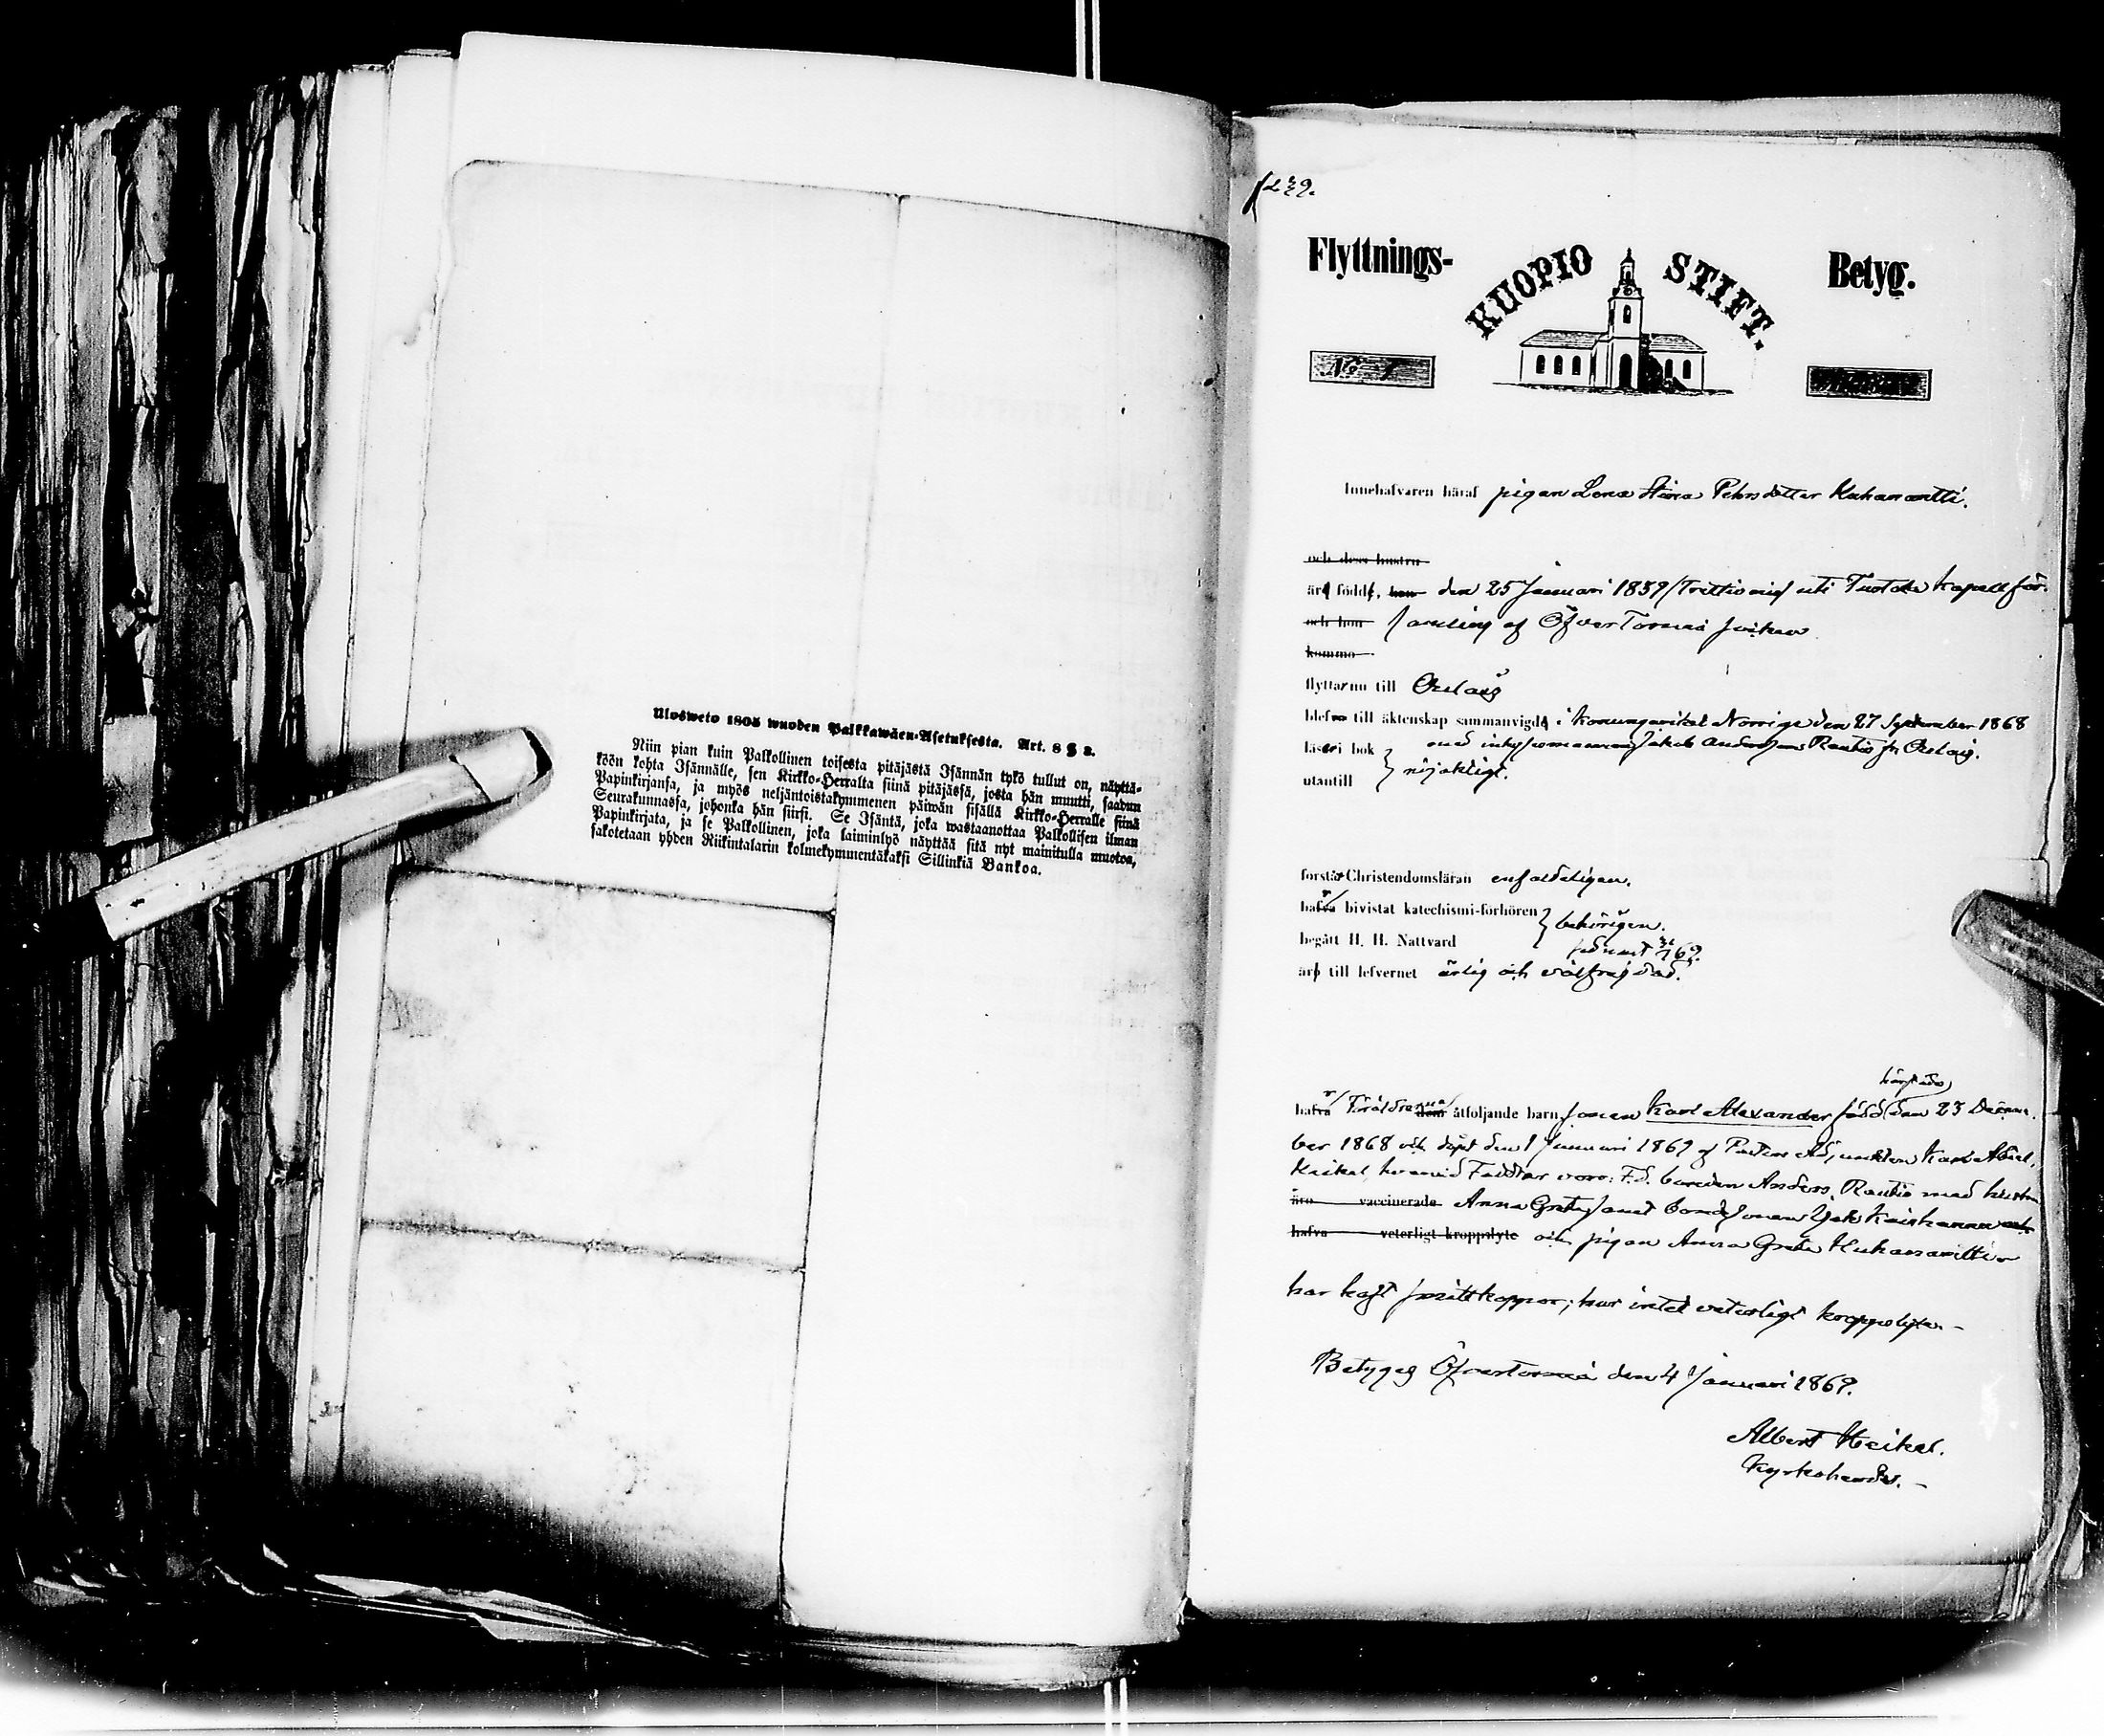 Ulosweto 1805 wuoden Palkkawäen-Asetuksesta. Art. 8 § 2.
Niin pian kuin Palkollinen toisesta pitäjästä Isännän tykö tullut on, näyttä-
köön kohta Isännälle, sen Kirkko-Herralta siinä pitäjässä, josta hän muutti, saadun
Papinkirjansa, ja myös neljäntoistakymmenen päiwän sisällä Kirkko-Herralle siinä
Seurakunnassa, johonka hän siirsi. Se Isäntä, joka wastaanottaa Palkollisen ilman
Papinkirjata, ja se Palkollinen, joka laiminlyö näyttää sitä nyt mainitulla muotoa,
sakotetaan yhden Riikintalarin kolmekymmentäkaksi Sillinkiä Bankoa.
Flyttnings- KUOPIO STIFT. Betyg.
No 1
Innehafvaren häraf pigan Lena Stina Pehrsdotter Kuhanantti.
och dess hustru
är född, den 25 Januari 1839 /Trettionio/ uti Turtola Kapellför-
och hon samling af ÖfverTorneå socken
kommo
flyttar nu till
blef till äktenskap sammanvigd i konungariket Norrige den 27 September 1868
läser i bok med inhysesmannen Jakob Andersson Rautio fr.
utantill nöjaktigt.
förstår Christendomsläran enfaldeligen.
hafva bivistat katechismi-förhören behörigen.
begått H. H. Nattvard senast 69.
är till lefvernet ärlig och välfrejdad.
härstädes
hafva Föräldrarna åtföljande barn sonen Karl Alexander född den 23 Decem-
ber 1868 och döpt den 1 Januari 1869 af Pastors Adjunkten Karl Abiel
Heikel, hvarvid Faddrar voro: F.d. bonden Anders Rautio med hustru
äro vaccinerade Anna Greta, samt bondesonen
hafva veterligt kroppslyte och pigan Anna Greta Kuhanantti
har haft smittkoppor; har intet veterligt kroppslyte. –
Betygas Öfvertorneå den 4 Januari 1869.
Albert Heikel.
Kyrkoherde. –